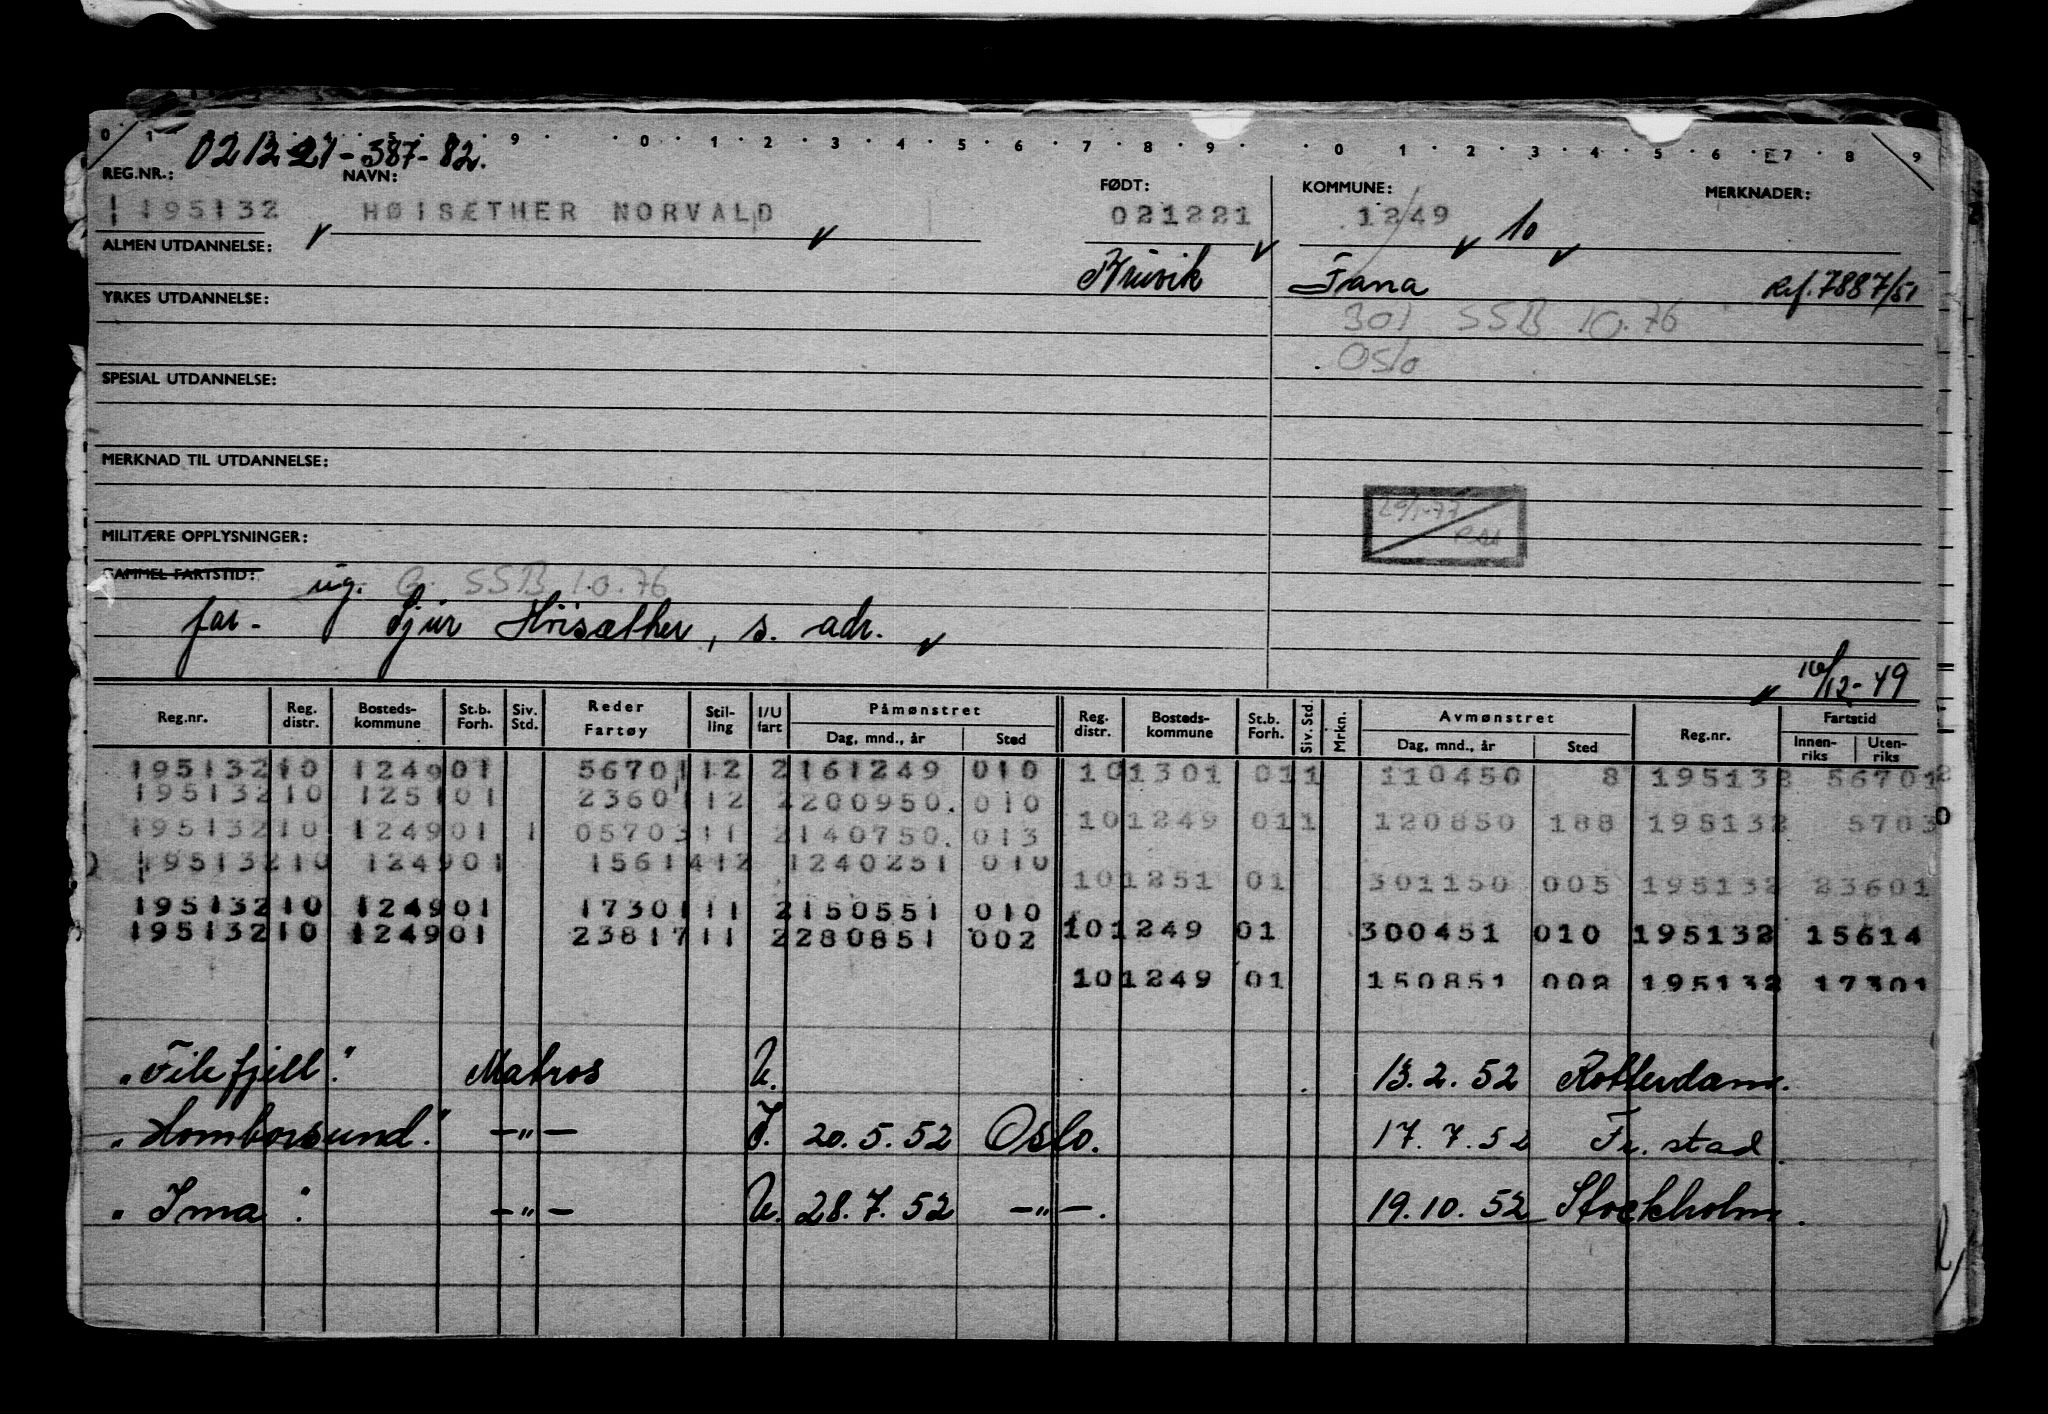 021221-387-82.
REG.NR.: NAVN: FØDT: KOMMUNE: MERKNADER:
195132 HØISÆTHER NORVALD 021221 1249 10
ALMEN UTDANNELSE: Bruvik Fana Ref. 7887/51
YRKES UTDANNELSE:
301 SSB 10.76
Oslo
SPESIAL UTDANNELSE:
MERKNAD TIL UTDANNELSE:
MILITÆRE OPPLYSNINGER:
GAMMEL FARTSTID: ug. G. SSB 10.76
far - Sjur Høisæther, s. adr.
16/12-49
Reg.nr. Reg. distr. Bosteds-kommune St.b. Forh. Siv. Std. Reder Fartøy Stil-ling I/U fart Påmønstret Dag, mnd., år Sted Reg. distr. Bosteds-kommune St.b. Forh. Siv. Std. Mrkn. Avmønstret Dag, mnd., år Sted Reg.nr. Fartstid Innen-riks Uten-riks
195132 10 1249 01 56701 12 2 161249 010 10 1301 01 1 110450 8 195132 56701
195132 10 1251 01 23601 12 2 200950. 010
195132 10 1249 01 1 05703 11 2 140750. 013 10 1249 01 1 120850 188 195132 5703
195132 10 1249 01 15614 12 1 240251 010
10 1251 01 301150 005 195132 23601
195132 10 1249 01 17301 11 2 150551 010
195132 10 1249 01 23817 11 2 280851 002 10 1249 01 300451 010 195132 15614
10 1249 01 150851 002 195132 17301
"Filefjell". Matros U. 13.2.52 Rotterdam.
"Homborsund". —"— I. 20.5.52 Oslo. 17.7.52 Fr.stad.
"Ima". —"— U. 28.7.52 —"—. 19.10.52 Stockholm.